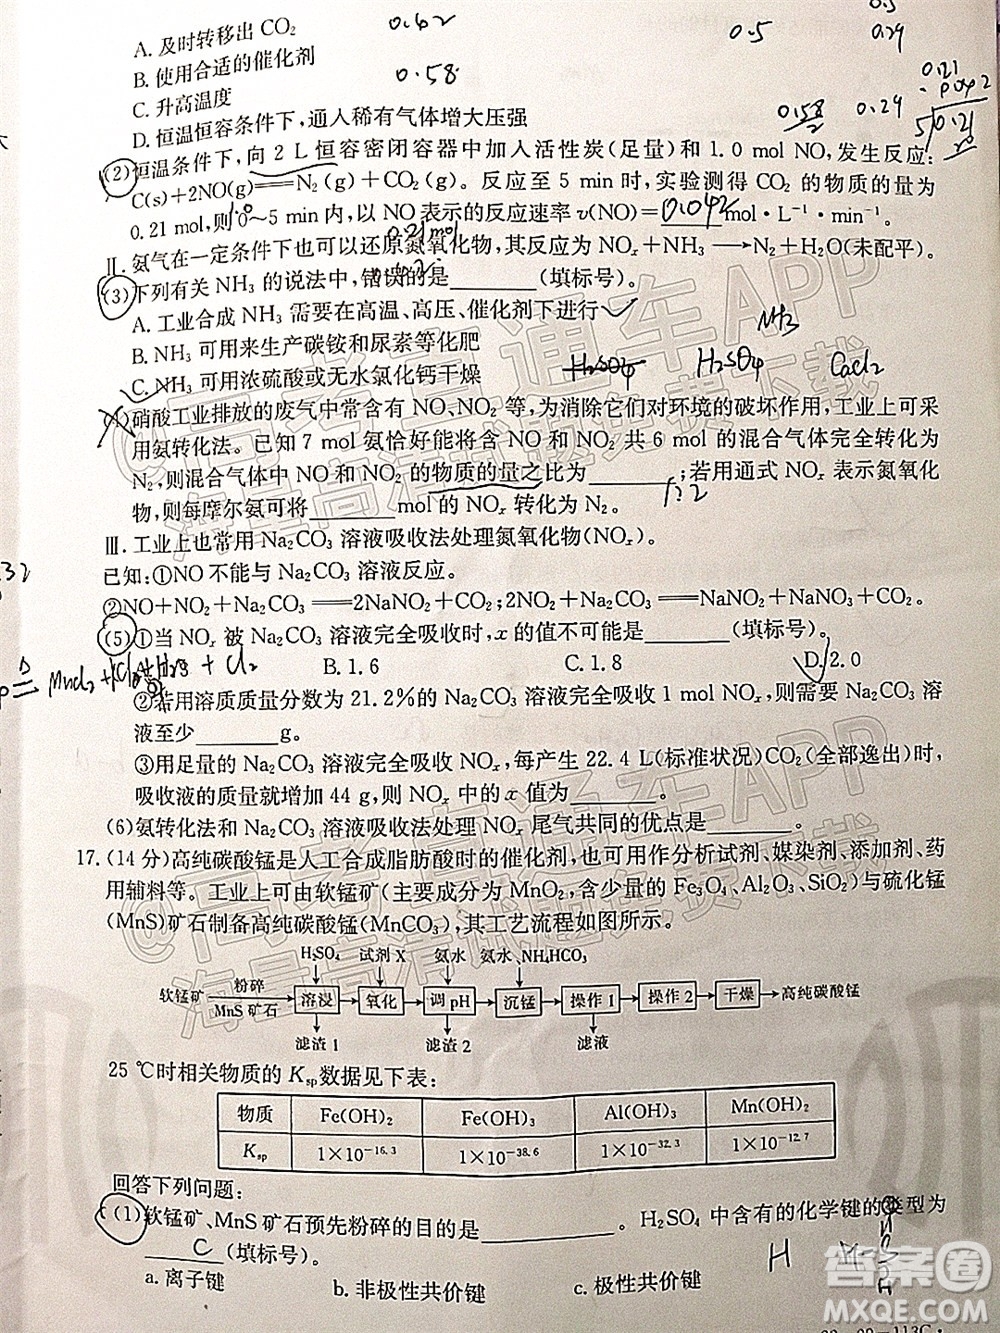 A. 及时转移出 CO₂
0.42
0.5
0.5
0.29
B. 使用合适的催化剂
0.58
C. 升高温度
D. 恒温恒容条件下，通入稀有气体增大压强
(2)恒温条件下，向 2 L 恒容密闭容器中加入活性炭(足量)和 1.0 mol NO，发生反应：
C(s)+2NO(g)══N₂(g)+CO₂(g)。反应至 5 min 时，实验测得 CO₂ 的物质的量为
0.21 mol，则 0～5 min 内，以 NO 表示的反应速率 v(NO)=0.042mol·L⁻¹·min⁻¹。
1.0
0.21mol
Ⅱ. 氨气在一定条件下也可以还原氮氧化物，其反应为 NOₓ+NH₃→N₂+H₂O(未配平)。
(3)下列有关 NH₃ 的说法中，错误的是______(填标号)。
A. 工业合成 NH₃ 需要在高温、高压、催化剂下进行
NH3
B. NH₃ 可用来生产碳铵和尿素等化肥
H2SO4
H2SO4
CaCl2
C. NH₃ 可用浓硫酸或无水氯化钙干燥
硝酸工业排放的废气中常含有 NO、NO₂ 等，为消除它们对环境的破坏作用，工业上可采
用氨转化法。已知 7 mol 氨恰好能将含 NO 和 NO₂ 共 6 mol 的混合气体完全转化为
N₂，则混合气体中 NO 和 NO₂ 的物质的量之比为______；若用通式 NOₓ 表示氮氧化
物，则每摩尔氨可将______mol 的 NOₓ 转化为 N₂。
Ⅲ. 工业上也常用 Na₂CO₃ 溶液吸收法处理氮氧化物(NOₓ)。
已知：①NO 不能与 Na₂CO₃ 溶液反应。
②NO+NO₂+Na₂CO₃══2NaNO₂+CO₂；2NO₂+Na₂CO₃══NaNO₂+NaNO₃+CO₂。
(5)①当 NOₓ 被 Na₂CO₃ 溶液完全吸收时，x 的值不可能是______(填标号)。
B. 1.6
C. 1.8
D. 2.0
②若用溶质质量分数为 21.2%的 Na₂CO₃ 溶液完全吸收 1 mol NOₓ，则需要 Na₂CO₃ 溶
液至少______g。
③用足量的 Na₂CO₃ 溶液完全吸收 NOₓ，每产生 22.4 L(标准状况)CO₂(全部逸出)时，
吸收液的质量就增加 44 g，则 NOₓ 中的 x 值为______。
(6)氨转化法和 Na₂CO₃ 溶液吸收法处理 NOₓ 尾气共同的优点是______。
17. (14 分)高纯碳酸锰是人工合成脂肪酸时的催化剂，也可用作分析试剂、媒染剂、添加剂、药
用辅料等。工业上可由软锰矿(主要成分为 MnO₂，含少量的 Fe₃O₄、Al₂O₃、SiO₂)与硫化锰
(MnS)矿石制备高纯碳酸锰(MnCO₃)，其工艺流程如图所示。
H₂SO₄ 试剂 X 氨水 氨水、NH₄HCO₃
软锰矿 粉碎 MnS 矿石 溶浸 氧化 调 pH 沉锰 操作 1 操作 2 干燥 高纯碳酸锰
滤渣 1 滤渣 2 滤液
25 ℃时相关物质的 Kₛₚ数据见下表：
物质 Fe(OH)₂ Fe(OH)₃ Al(OH)₃ Mn(OH)₂
Kₛₚ 1×10⁻¹⁶·³ 1×10⁻³⁸·⁶ 1×10⁻³²·³ 1×10⁻¹²·⁷
回答下列问题：
(1)软锰矿、MnS 矿石预先粉碎的目的是______。H₂SO₄ 中含有的化学键的类型为
C(填标号)。
a. 离子键
b. 非极性共价键
c. 极性共价键
@高考直通车APP
海量高清试题免费下载
@高考直通车APP
海量高清试题免费下载
答案圈
MXQE.COM